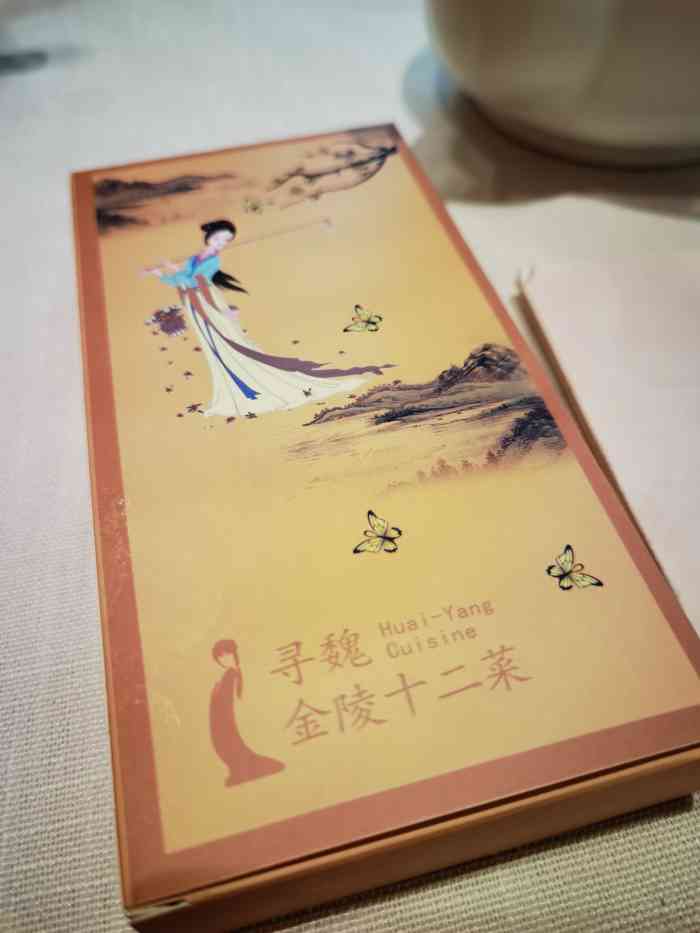 寻魏 Huai-Yang
Cuisine
金陵十二菜